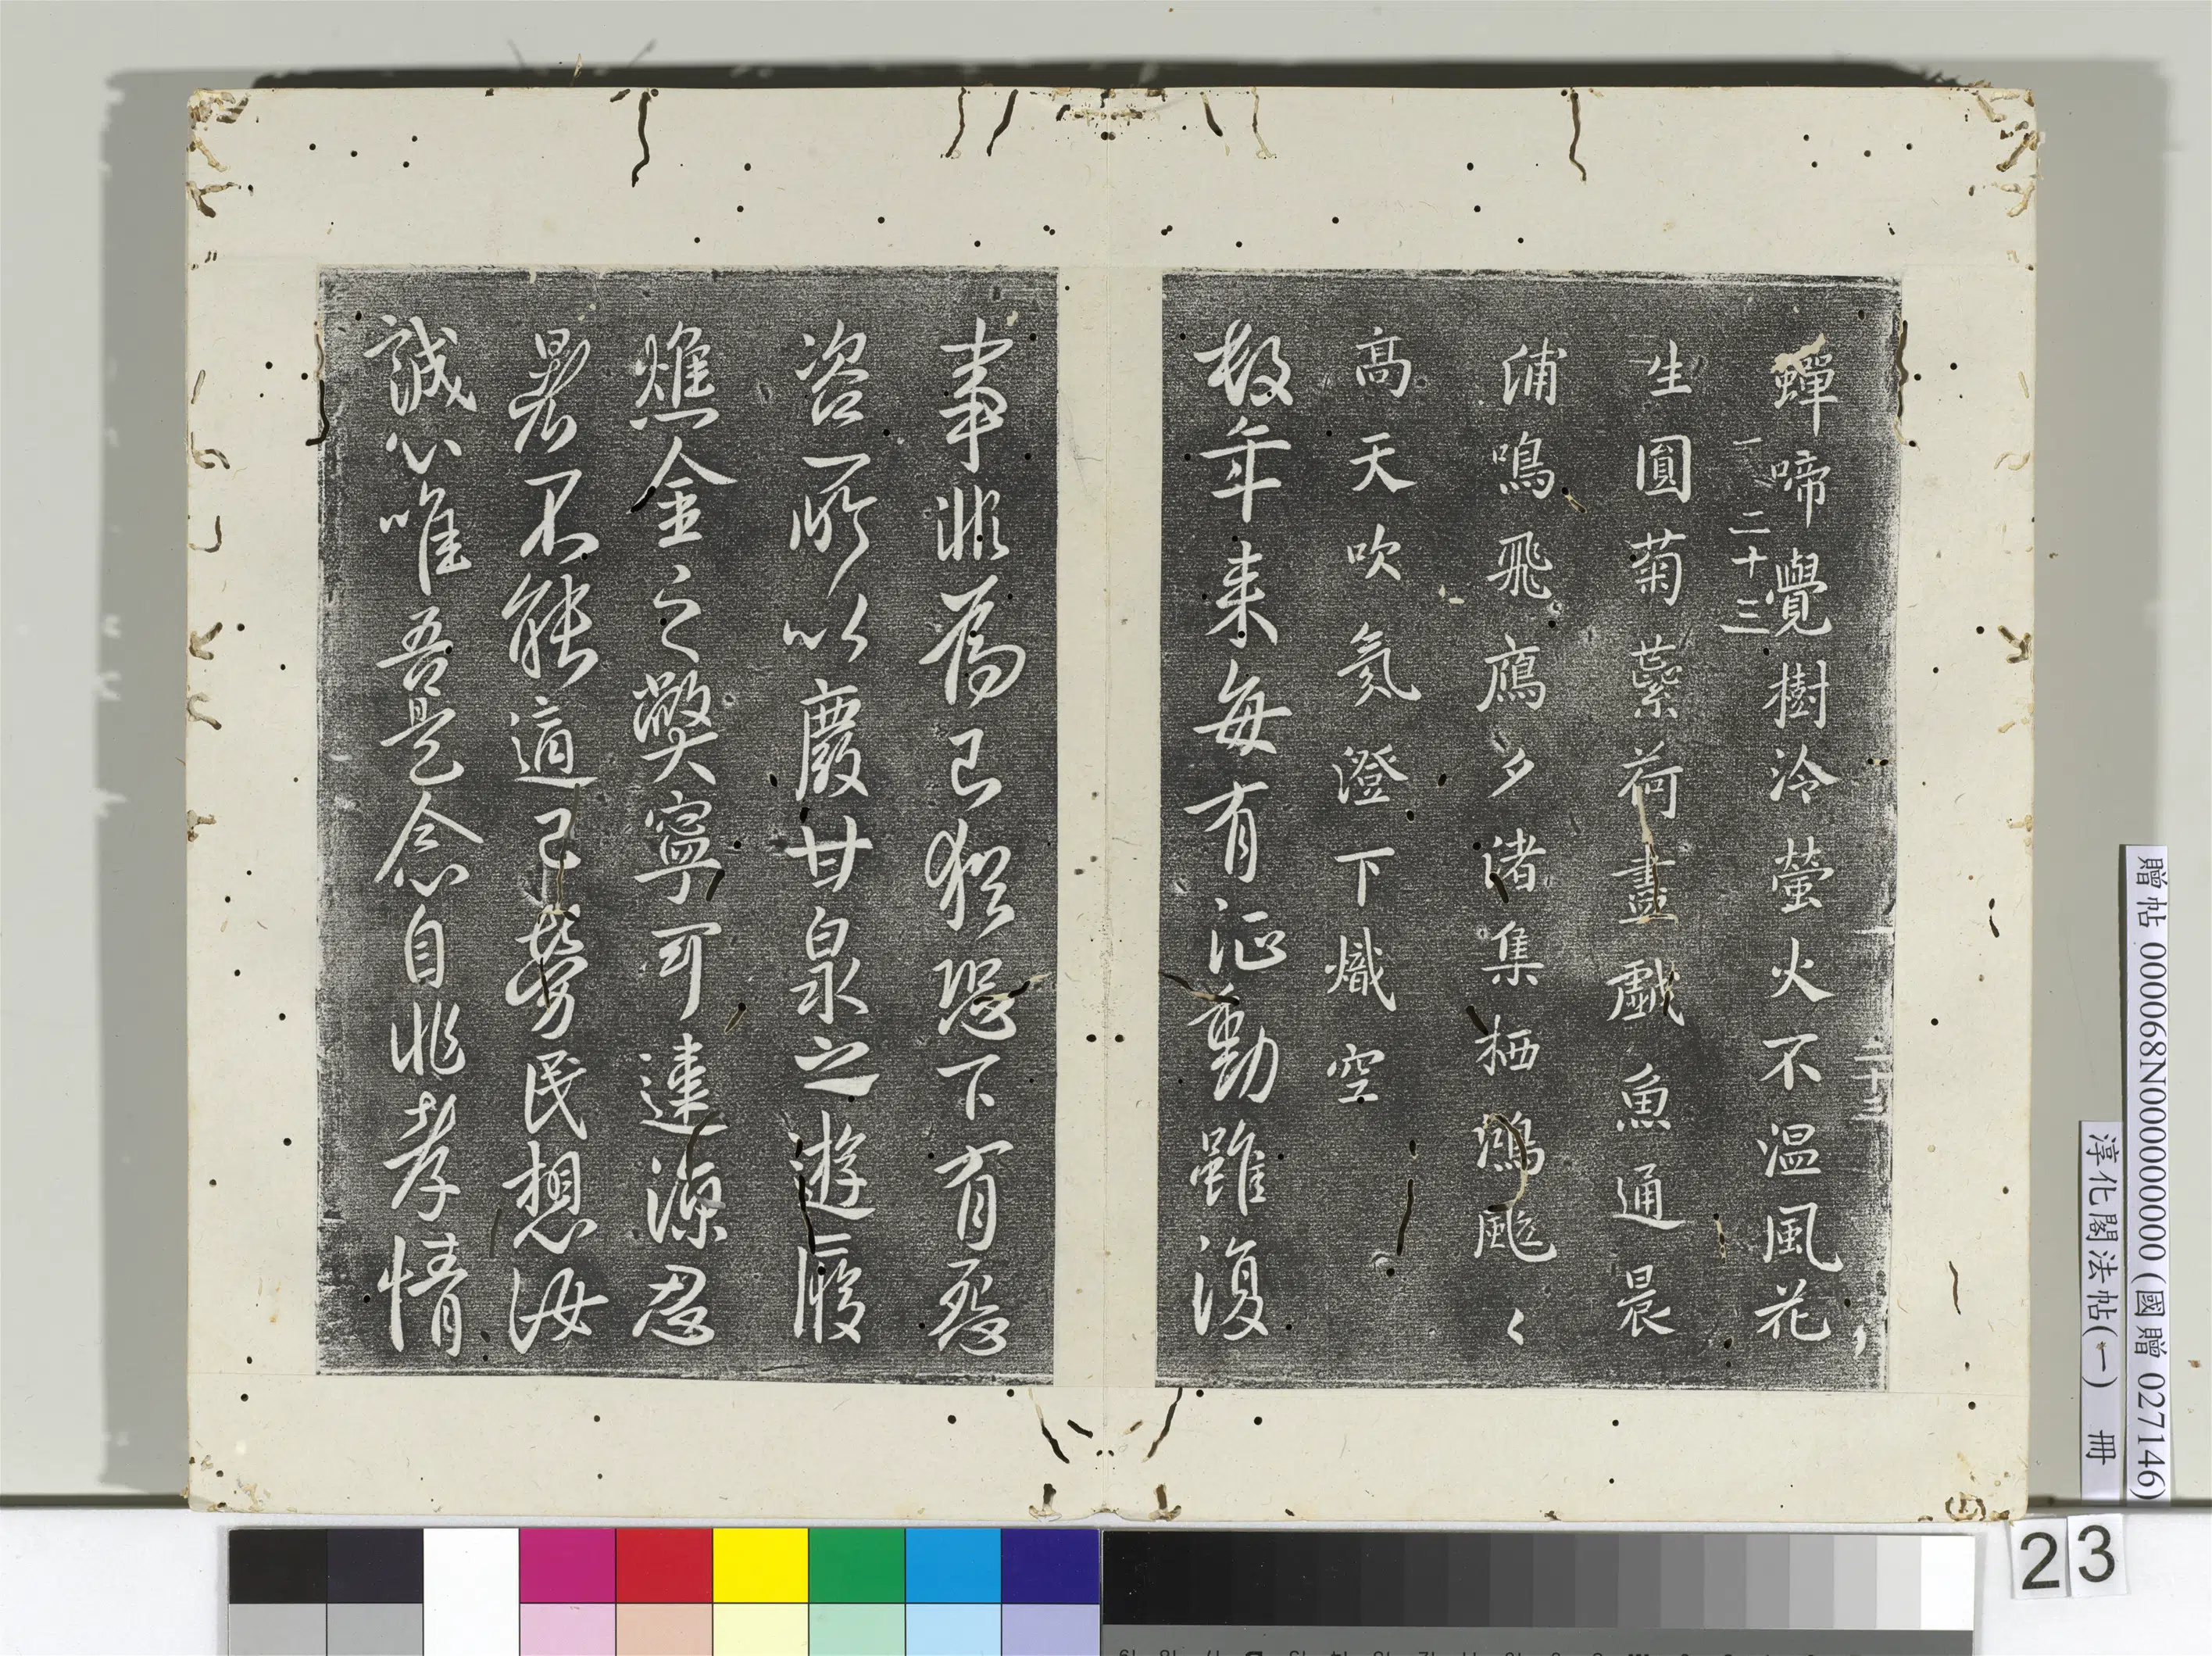 蟬啼覺樹冷螢火不溫風花
一 二十三
生圓菊蘂荷盡戲魚通晨
浦鳴飛鴈夕渚集栖鴻颭〻
高天吹氛澄下熾空
數年来每有沁動雖復
事非為己猶恐下有發
咨所以廢甘泉之遊履
燋金之獘寧可違涼忍
暑不能適己勞民想汝
誠心唯吾是念自非孝情
贈帖 000068N000000000 (國贈 027146)
淳化閣法帖(一) 冊
23